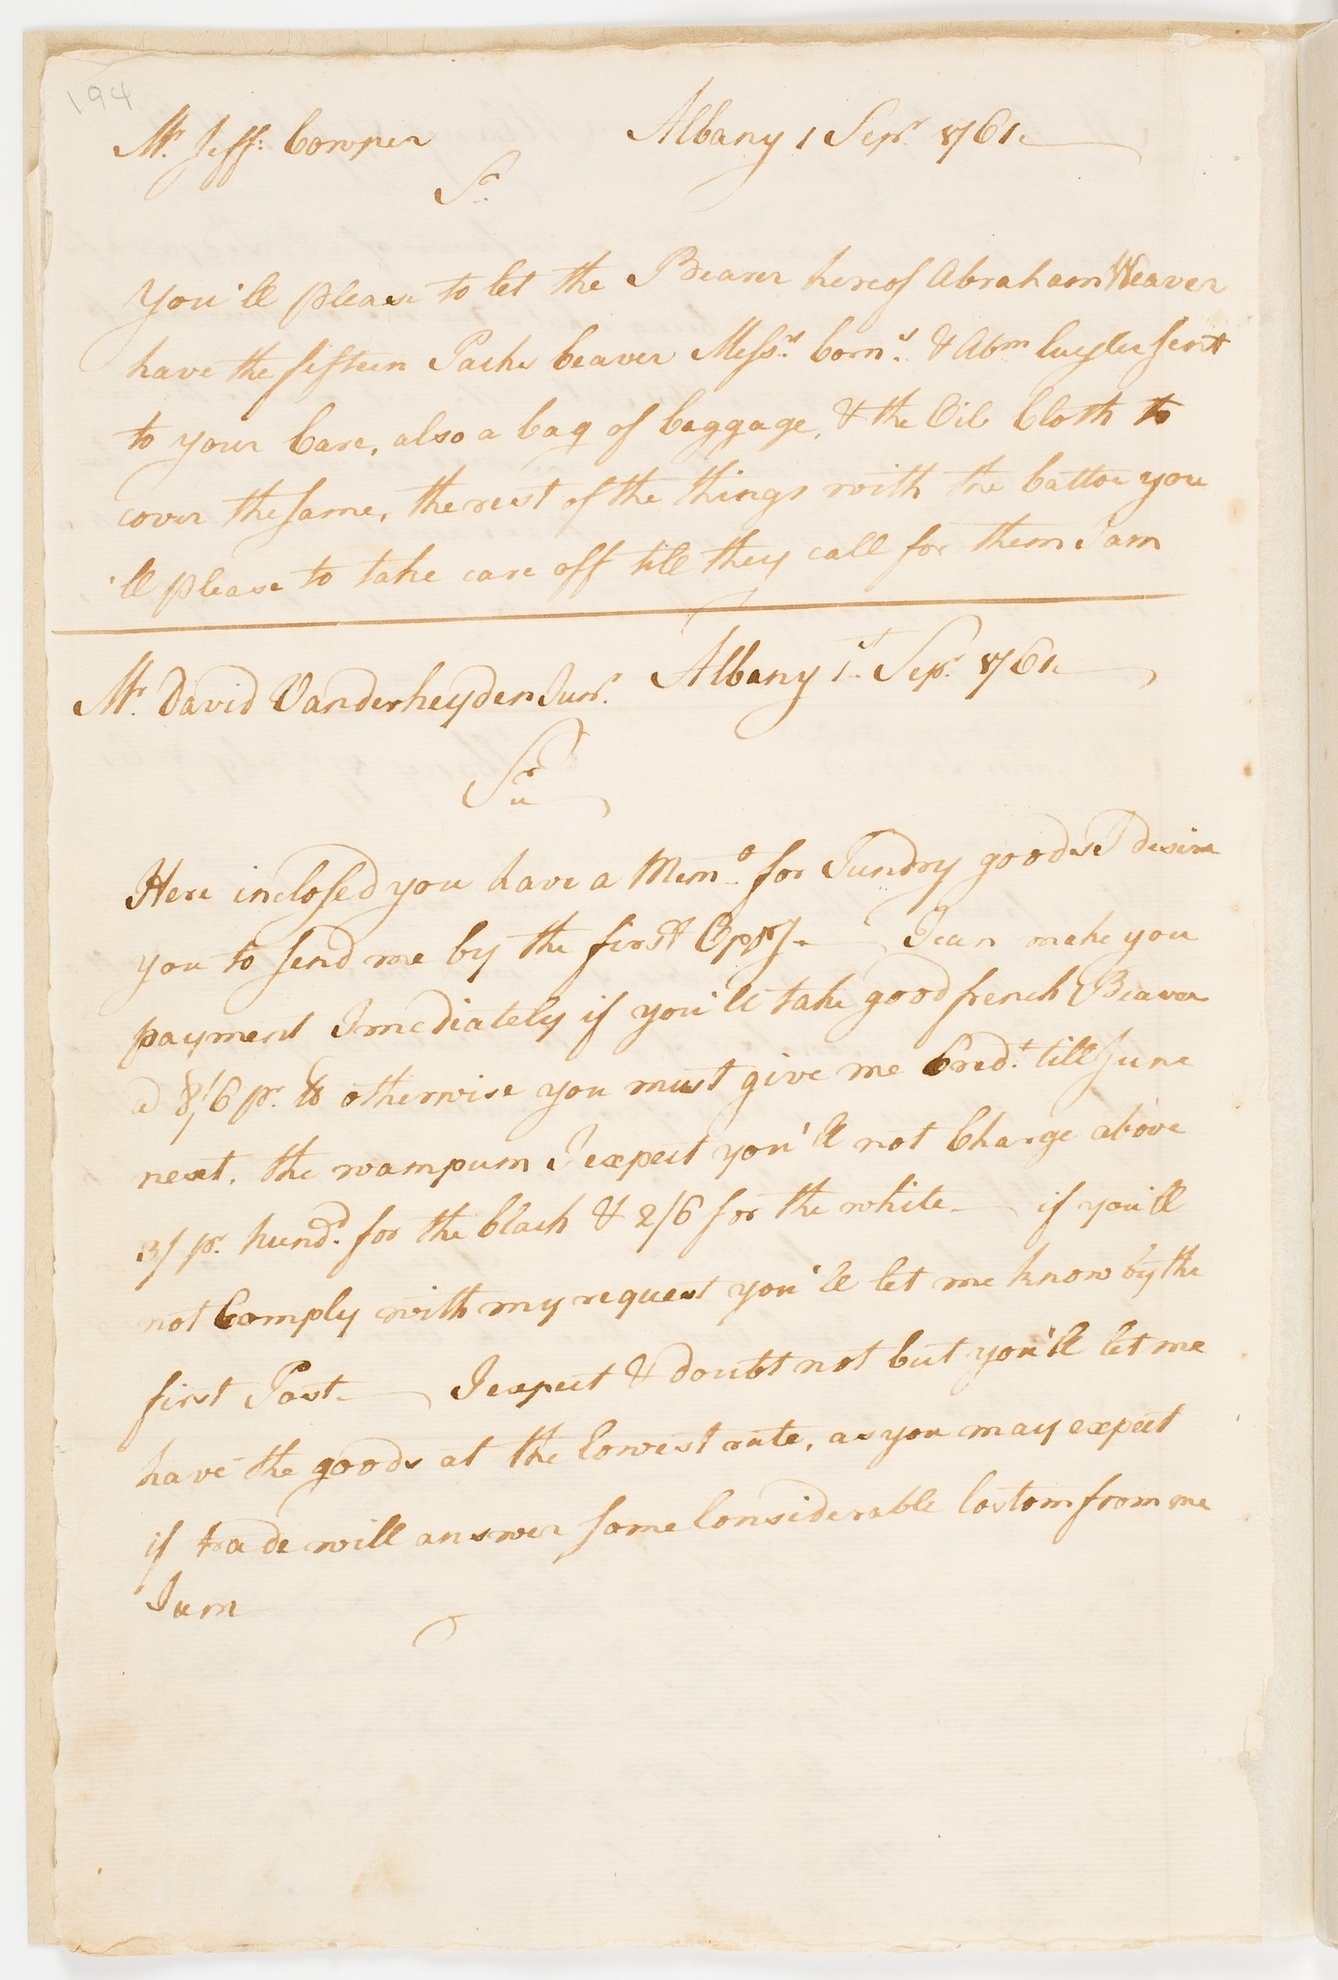 194
Mr. Jeff: Cowper Albany 1 Sepr. 1761.
Sr.
You'll please to let the Bearer hereof Abraham Weaver
have the fifteen Packs beaver Messrs. Corns. & Abm Cuyler sent
to your Care, also a bag of baggage, & the Oil Cloth to
cover the same, the rest of the things with the battoe you
'll please to take care off till they call for them I am
Mr. David Vanderheyden Junr. Albany 1st. Sepr. 1761.
Sr
Here inclosed you have a Memo. for Sundry goods I desire
you to send me by the first Oppry. I can make you
payment Imediately if you'll take good french Beaver
a 8/6 pr. lb otherwise you must give me Credt. till June
next. the wampum I expect you'll not Charge above
3/ pr. hund. for the black & 2/6 for the white. if you'll
not Comply with my request you'll let me know by the
first Post. I expect & doubt not but you'll let me
have the goods at the lowest rate, as you may expect
if trade will answer some Considerable Costom from me
I am